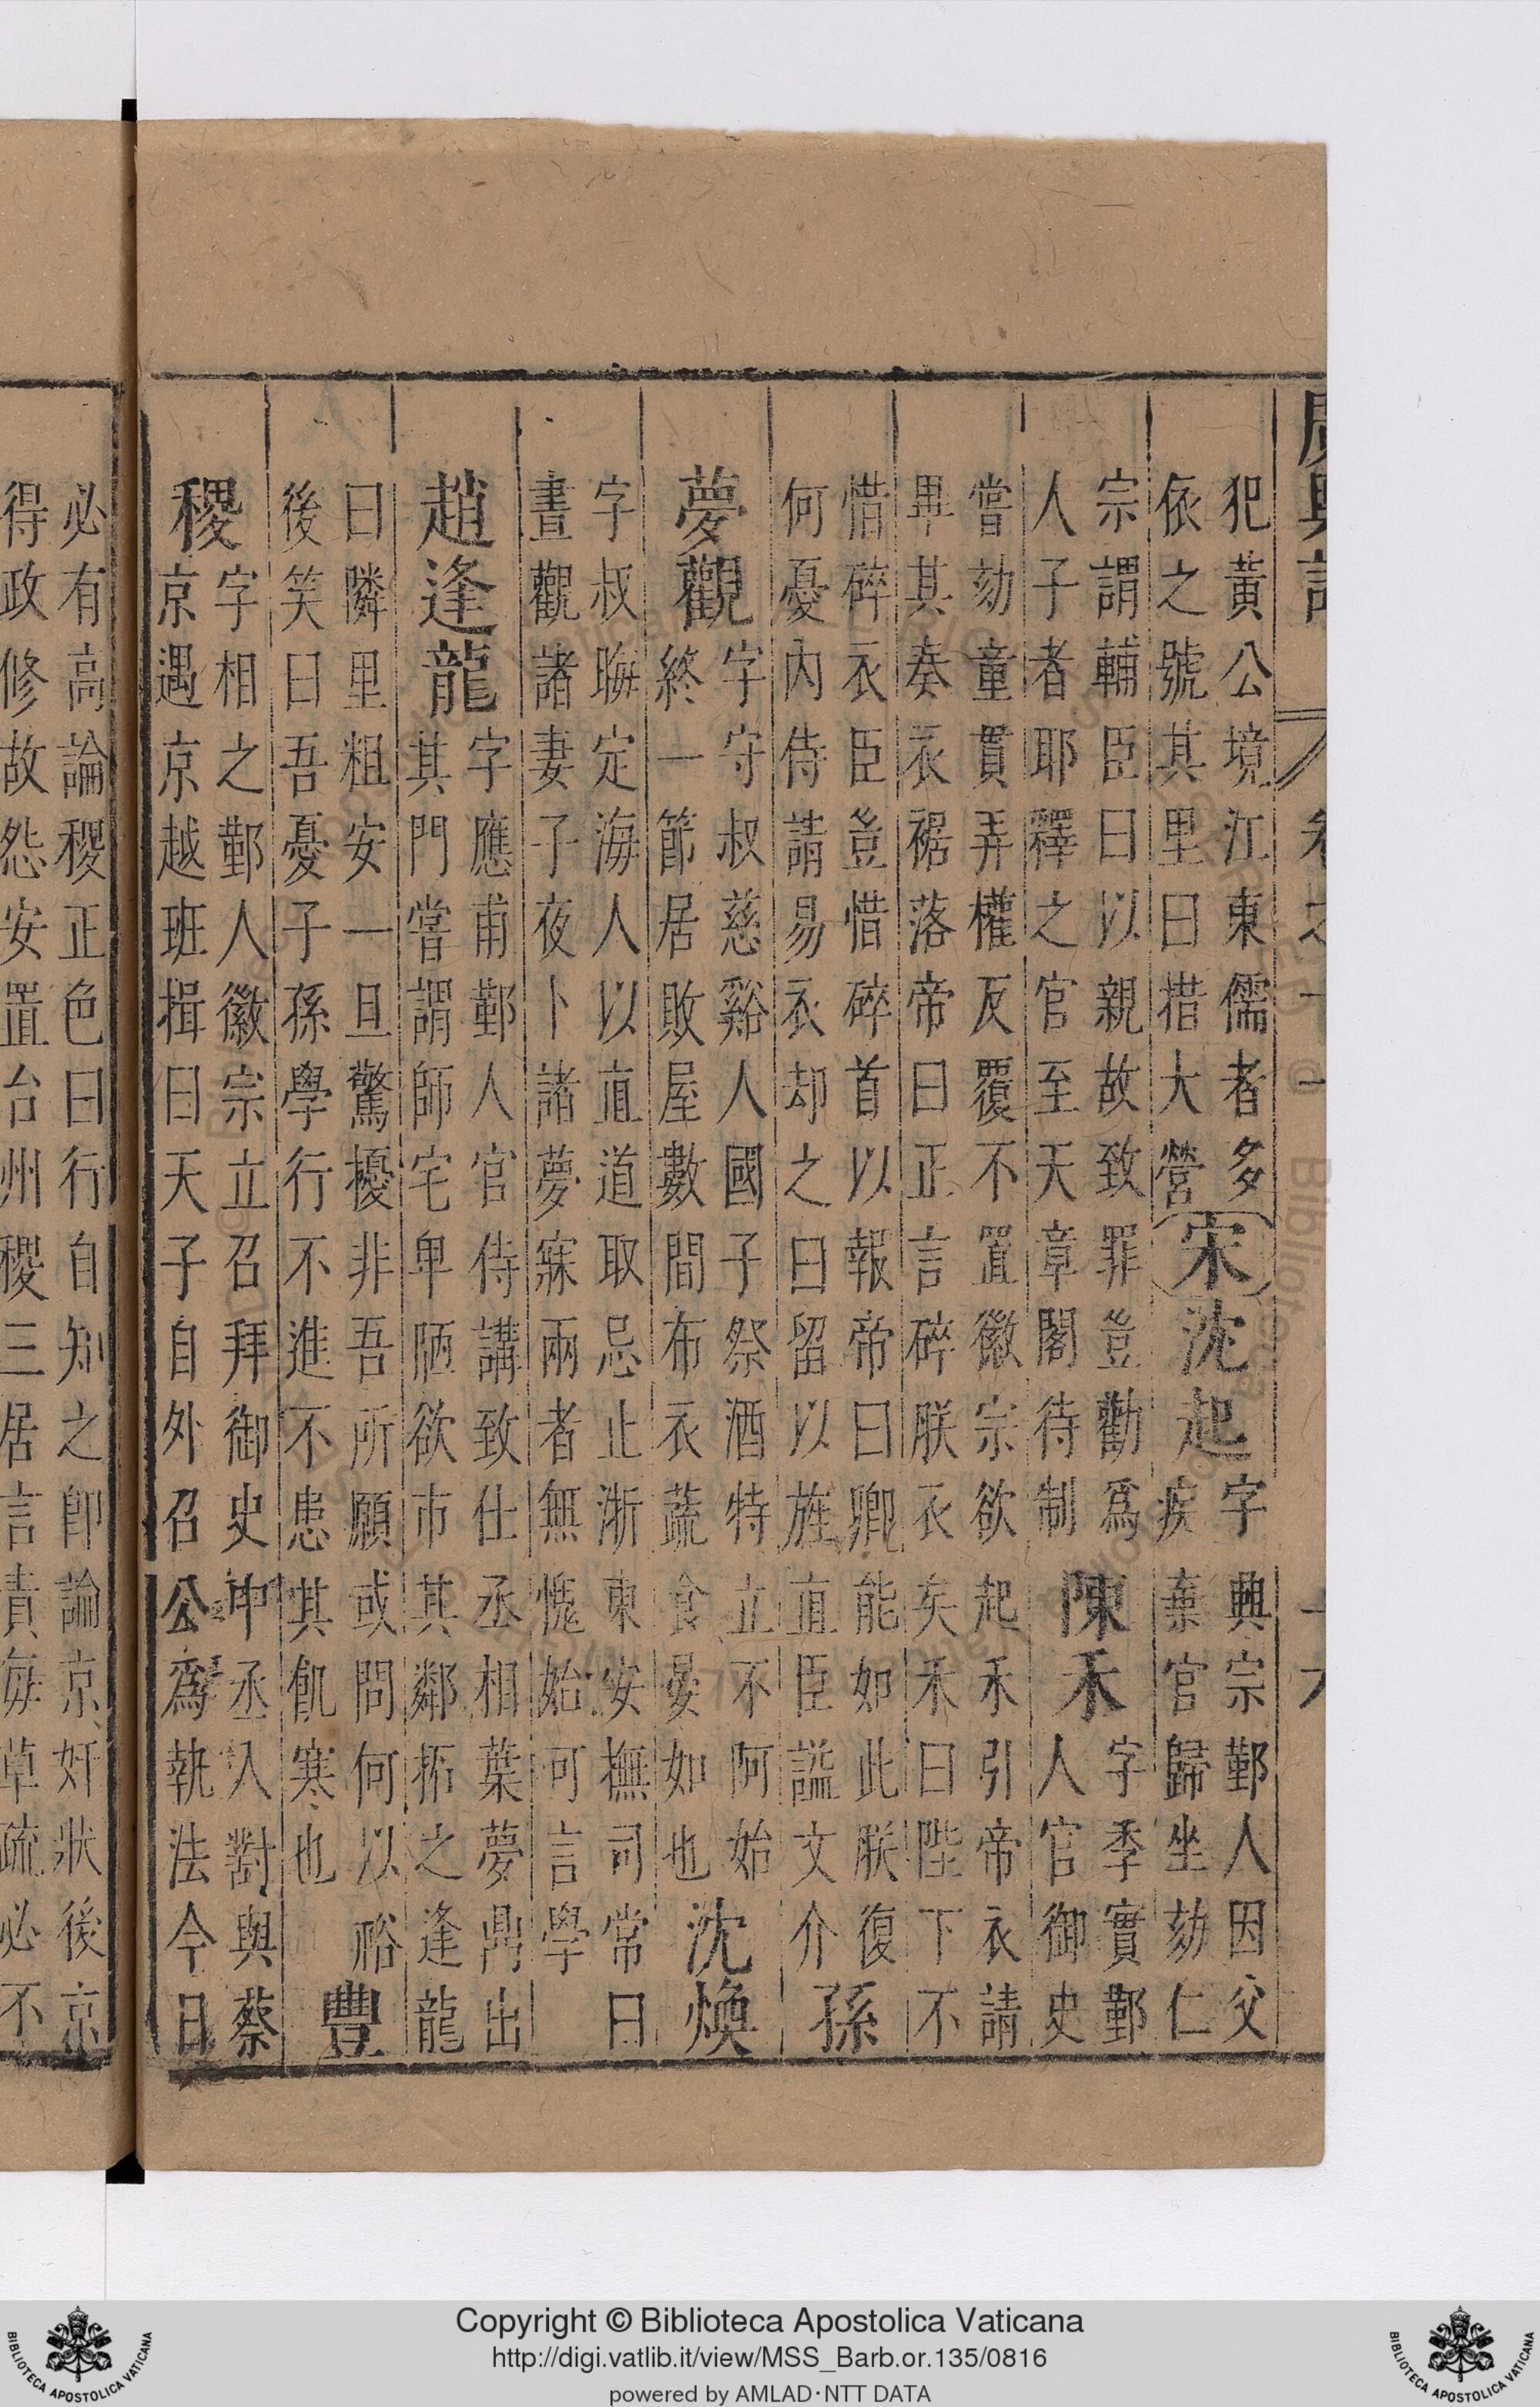 廣輿記 卷之十一 十六
犯黃公境江東儒者多
依之號其里曰措大營宋沈起字興宗鄞人因父
疾棄官歸坐劾仁
宗謂輔臣曰以親故致罪豈勸爲
人子者耶釋之官至天章閣待制陳禾字季實鄞
人官御史
嘗劾童貫弄權反覆不置徽宗欲起禾引帝衣請
畢其奏衣裾落帝曰正言碎朕衣矣禾曰陛下不
惜碎衣臣豈惜碎首以報帝曰卿能如此朕復
何憂內侍請易衣却之曰留以旌直臣謚文介孫
夢觀字守叔慈谿人國子祭酒特立不阿始
終一節居敗屋數間布衣蔬食晏如也沈煥
字叔晦定海人以直道取忌止浙東安撫司常曰
晝觀諸妻子夜卜諸夢寐兩者無愧始可言學
趙逢龍字應甫鄞人官侍講致仕丞相葉夢鼎出
其門嘗謂師宅卑陋欲市其鄰拓之逢龍
曰隣里粗安一旦驚擾非吾所願或問何以裕
後笑曰吾憂子孫學行不進不患其飢寒也豐
稷字相之鄞人徽宗立召拜御史中丞入對與蔡
京遇京越班揖曰天子自外召公爲執法今日
必有高論稷正色曰行自知之卽論京奸狀後京
得政修故怨安置台州稷三居言責每草疏必不
Copyright © Biblioteca Apostolica Vaticana
http://digi.vatlib.it/view/MSS_Barb.or.135/0816
powered by AMLAD·NTT DATA
BIBLIOTECA APOSTOLICA VATICANA
BIBLIOTECA APOSTOLICA VATICANA